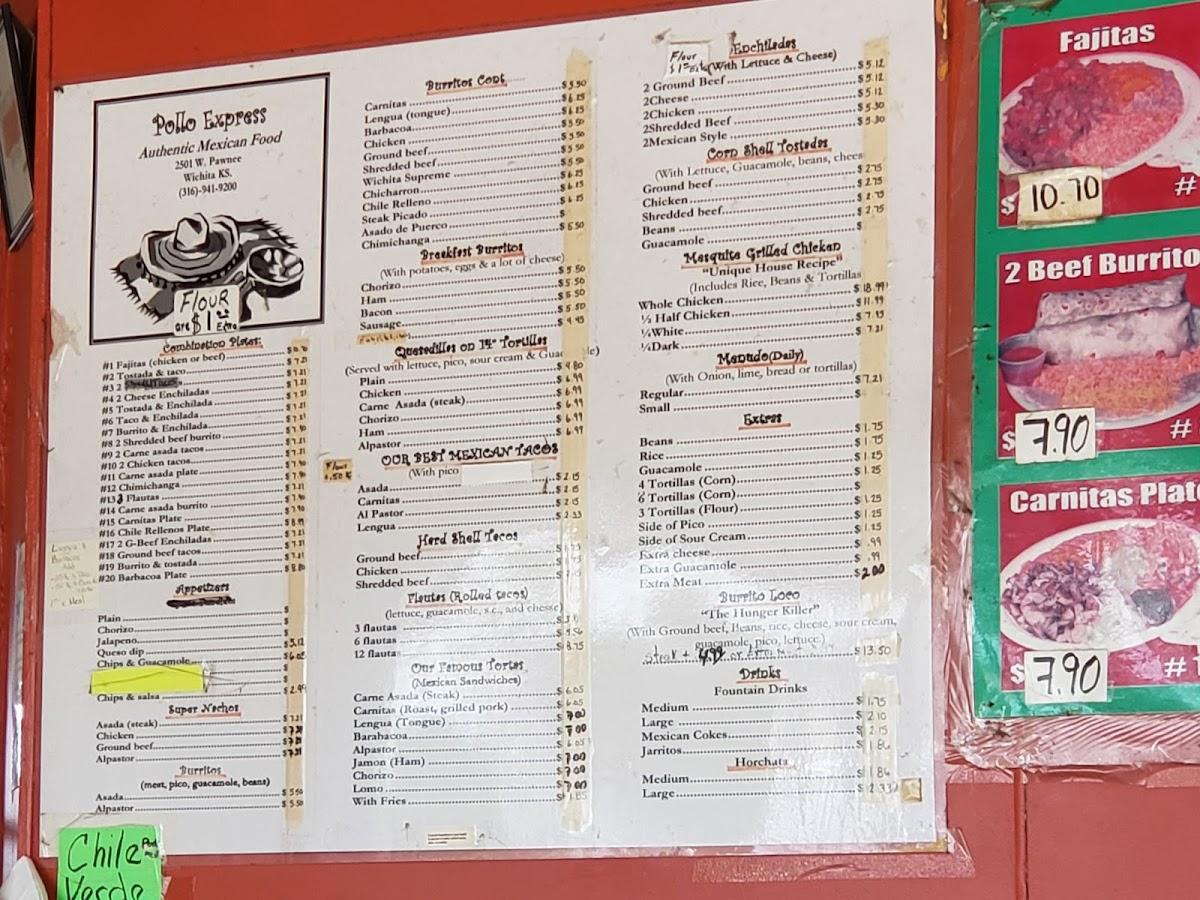 Pollo Express
Authentic Mexican Food
2501 W. Pawnee
Wichita KS.
(316)-941-9200
FLOUR
are $1 Extra
Combination Plates:
#1 Fajitas (chicken or beef)
#2 Tostada & taco $7.21
#3 2
#4 2 Cheese Enchiladas
#5 Tostada & Enchilada
#6 Taco & Enchilada
#7 Burrito & Enchilada
#8 2 Shredded beef burrito
#9 2 Carne asada tacos
#10 2 Chicken tacos
#11 Carne asada plate
#12 Chimichanga
#13 3 Flautas
#14 Carne asada burrito
#15 Carnitas Plate
#16 Chile Rellenos Plate
#17 2 G-Beef Enchiladas
#18 Ground beef tacos
#19 Burrito & tostada
#20 Barbacoa Plate
Appetizers
Plain $
Chorizo $
Jalapeno $
Queso dip $5.12
Chips & Guacamole
Chips & salsa $2.99
Super Nachos
Asada (steak) $7.21
Chicken
Ground beef
Alpastor
Burritos
(meat, pico, guacamole, beans)
Asada $5.50
Alpastor $5.50
Burritos Cont.
Carnitas $5.50
Lengua (tongue) $6.25
Barbacoa $6.25
Chicken $5.50
Ground beef $5.50
Shredded beef $5.50
Wichita Supreme $5.50
Chicharron
Chile Relleno
Steak Picado
Asado de Puerco
Chimichanga $5.50
Breakfast Burritos
(With potatoes, eggs & a lot of cheese)
Chorizo $5.50
Ham $5.50
Bacon $5.50
Sausage $5.50
Quesadillas on 14" Tortillas
(Served with lettuce, pico, sour cream &
Plain $4.80
Chicken $6.99
Carne Asada (steak) $6.99
Chorizo $6.99
Ham $6.99
Alpastor $6.99
OUR BEST MEXICAN TACOS
(With pico
Asada $2.15
Carnitas $2.15
Al Pastor $2.15
Lengua $2.33
Hard Shell Tacos
Ground beef
Chicken
Shredded beef
Flautas (Rolled tacos)
(lettuce, guacamole, s.c., and cheese)
3 flautas
6 flautas
12 flautas $8.75
Our Famous Tortas
(Mexican Sandwiches)
Carne Asada (Steak) $6.05
Carnitas (Roast, grilled pork) $6.05
Lengua (Tongue) $7.00
Barabacoa $7.00
Alpastor $6.05
Jamon (Ham) $7.00
Chorizo $7.00
Lomo $7.00
With Fries
Flour
Enchiladas
(With Lettuce & Cheese)
2 Ground Beef $5.12
2Cheese $5.12
2Chicken $5.12
2Shredded Beef $5.30
2Mexican Style $5.30
Corn Shell Tostadas
(With Lettuce, Guacamole, beans, chees
Ground beef $2.75
Chicken $2.75
Shredded beef $2.75
Beans $2.75
Guacamole $
Mesquite Grilled Chicken
"Unique House Recipe"
(Includes Rice, Beans & Tortillas
Whole Chicken $18.99
½ Half Chicken $11.99
¼White
¼Dark $7.21
Menudo(Daily)
(With Onion, lime, bread or tortillas)
Regular $7.21
Small $
Extras
Beans $1.75
Rice $1.75
Guacamole $1.25
4 Tortillas (Corn) $1.25
6 Tortillas (Corn) $
3 Tortillas (Flour) $1.25
Side of Pico $1.25
Side of Sour Cream $1.25
Extra cheese $.99
Extra Guacamole $.99
Extra Meat $2.00
Burrito Loco
"The Hunger Killer"
(With Ground beef, Beans, rice, cheese, sour cream,
guacamole, pico, lettuce.)
$13.50
Drinks
Fountain Drinks
Medium $1.75
Large $2.10
Mexican Cokes $2.15
Jarritos $1.86
Horchata
Medium $1.86
Large $2.33
Fajitas
$10.70
#
2 Beef Burrito
$7.90
#
Carnitas Plate
$7.90
#
Chile
Verde